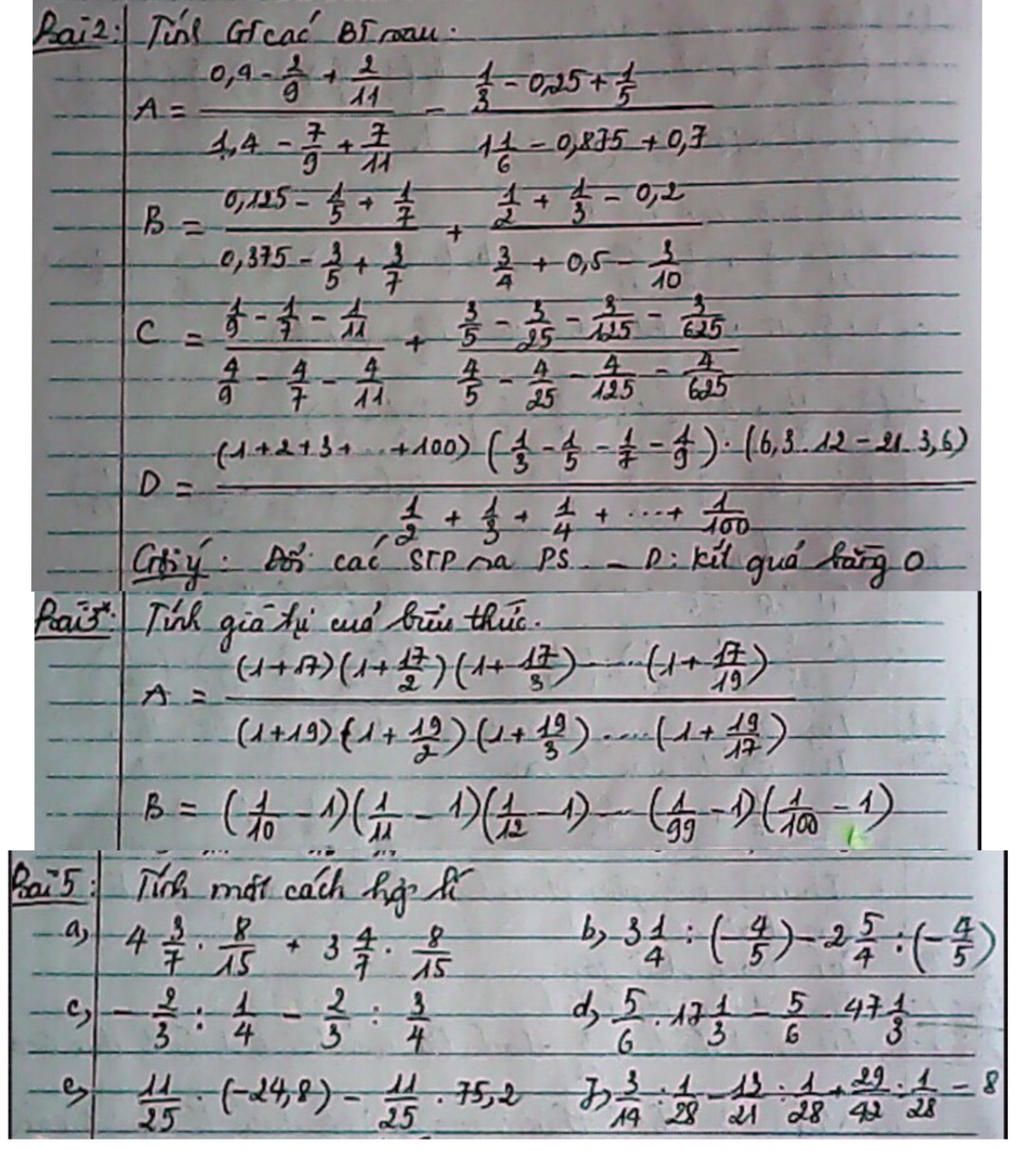 Bài 2: Tính GT các BT sau.
A = (0,4 - 2/9 + 2/11)/(1,4 - 7/9 + 7/11) - (1/3 - 0,25 + 1/5)/(1 1/6 - 0,875 + 0,7)
B = (0,125 - 1/5 + 1/7)/(0,375 - 3/5 + 3/7) + (1/2 + 1/3 - 0,2)/(3/4 + 0,5 - 3/10)
C = (1/9 - 1/7 - 1/11)/(4/9 - 4/7 - 4/11) + (3/5 - 3/25 - 3/125 - 3/625)/(4/5 - 4/25 - 4/125 - 4/625)
D = ((1+2+3+...+100)(1/3 - 1/5 - 1/7 - 1/9).(6,3.12 - 21.3,6))/(1/2 + 1/3 + 1/4 + ... + 1/100)
Gợi ý: Đổi các STP ra PS - D: Kết quả bằng 0
Bài 3*: Tính giá trị của biểu thức.
A = ((1+17)(1+17/2)(1+17/3)....(1+17/19))/((1+19)(1+19/2)(1+19/3)....(1+19/17))
B = (1/10 - 1)(1/11 - 1)(1/12 - 1)...(1/99 - 1)(1/100 - 1)
Bài 5: Tính một cách hợp lí
a, 4 3/7 . 8/15 + 3 4/7 . 8/15 b, 3 1/4 : (-4/5) - 2 5/4 : (-4/5)
c, -2/3 : 1/4 - 2/3 : 3/4 d, 5/6 . 17 1/3 - 5/6 . 47 1/3
e, 11/25 . (-24,8) - 11/25 . 75,2 f, 3/14 : 1/28 - 13/21 : 1/28 + 29/42 : 1/28 - 8